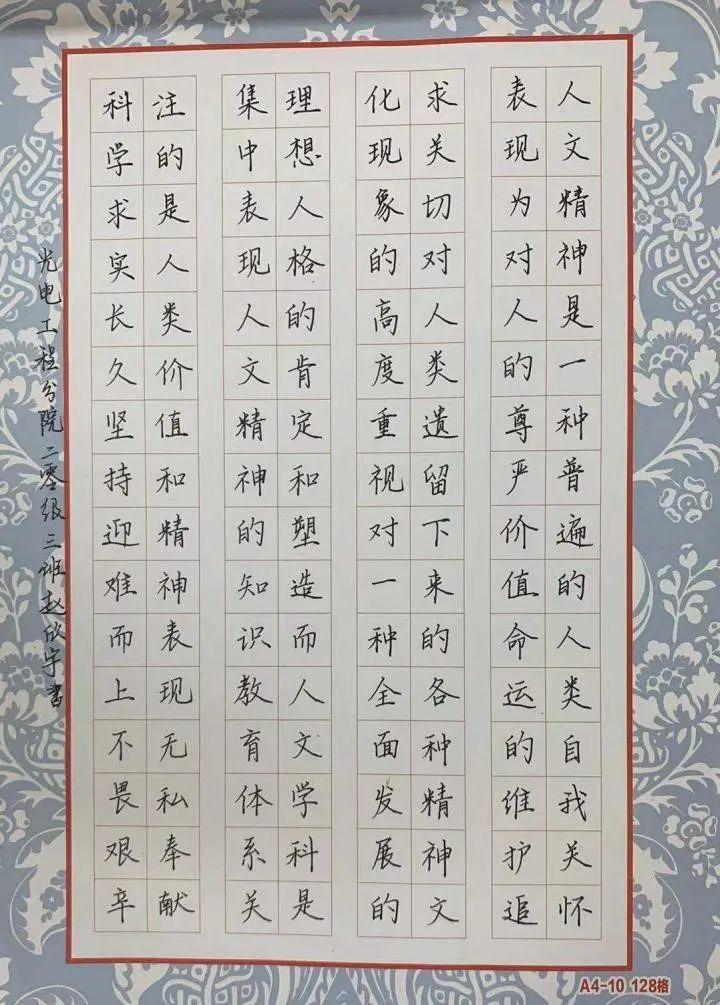 人文精神是一种普遍的人类自我关怀
表现为对人的尊严价值命运的维护追
求关切对人类遗留下来的各种精神文
化现象的高度重视对一种全面发展的
理想人格的肯定和塑造而人文学科是
集中表现人文精神的知识教育体系关
注的是人类价值和精神表现无私奉献
科学求实长久坚持迎难而上不畏艰辛
光电工程分院二零级三班赵欣宇书
A4-10 128格